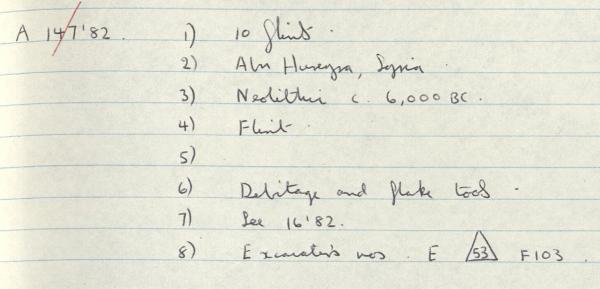 A 147'82. 1) 10 flint.
2) Abu Hureyra, Syria.
3) Neolithic c. 6,000 BC.
4) Flint.
5)
6) Debitage and flake tools.
7) See 16'82.
8) Excavation nos. E 53 F103.